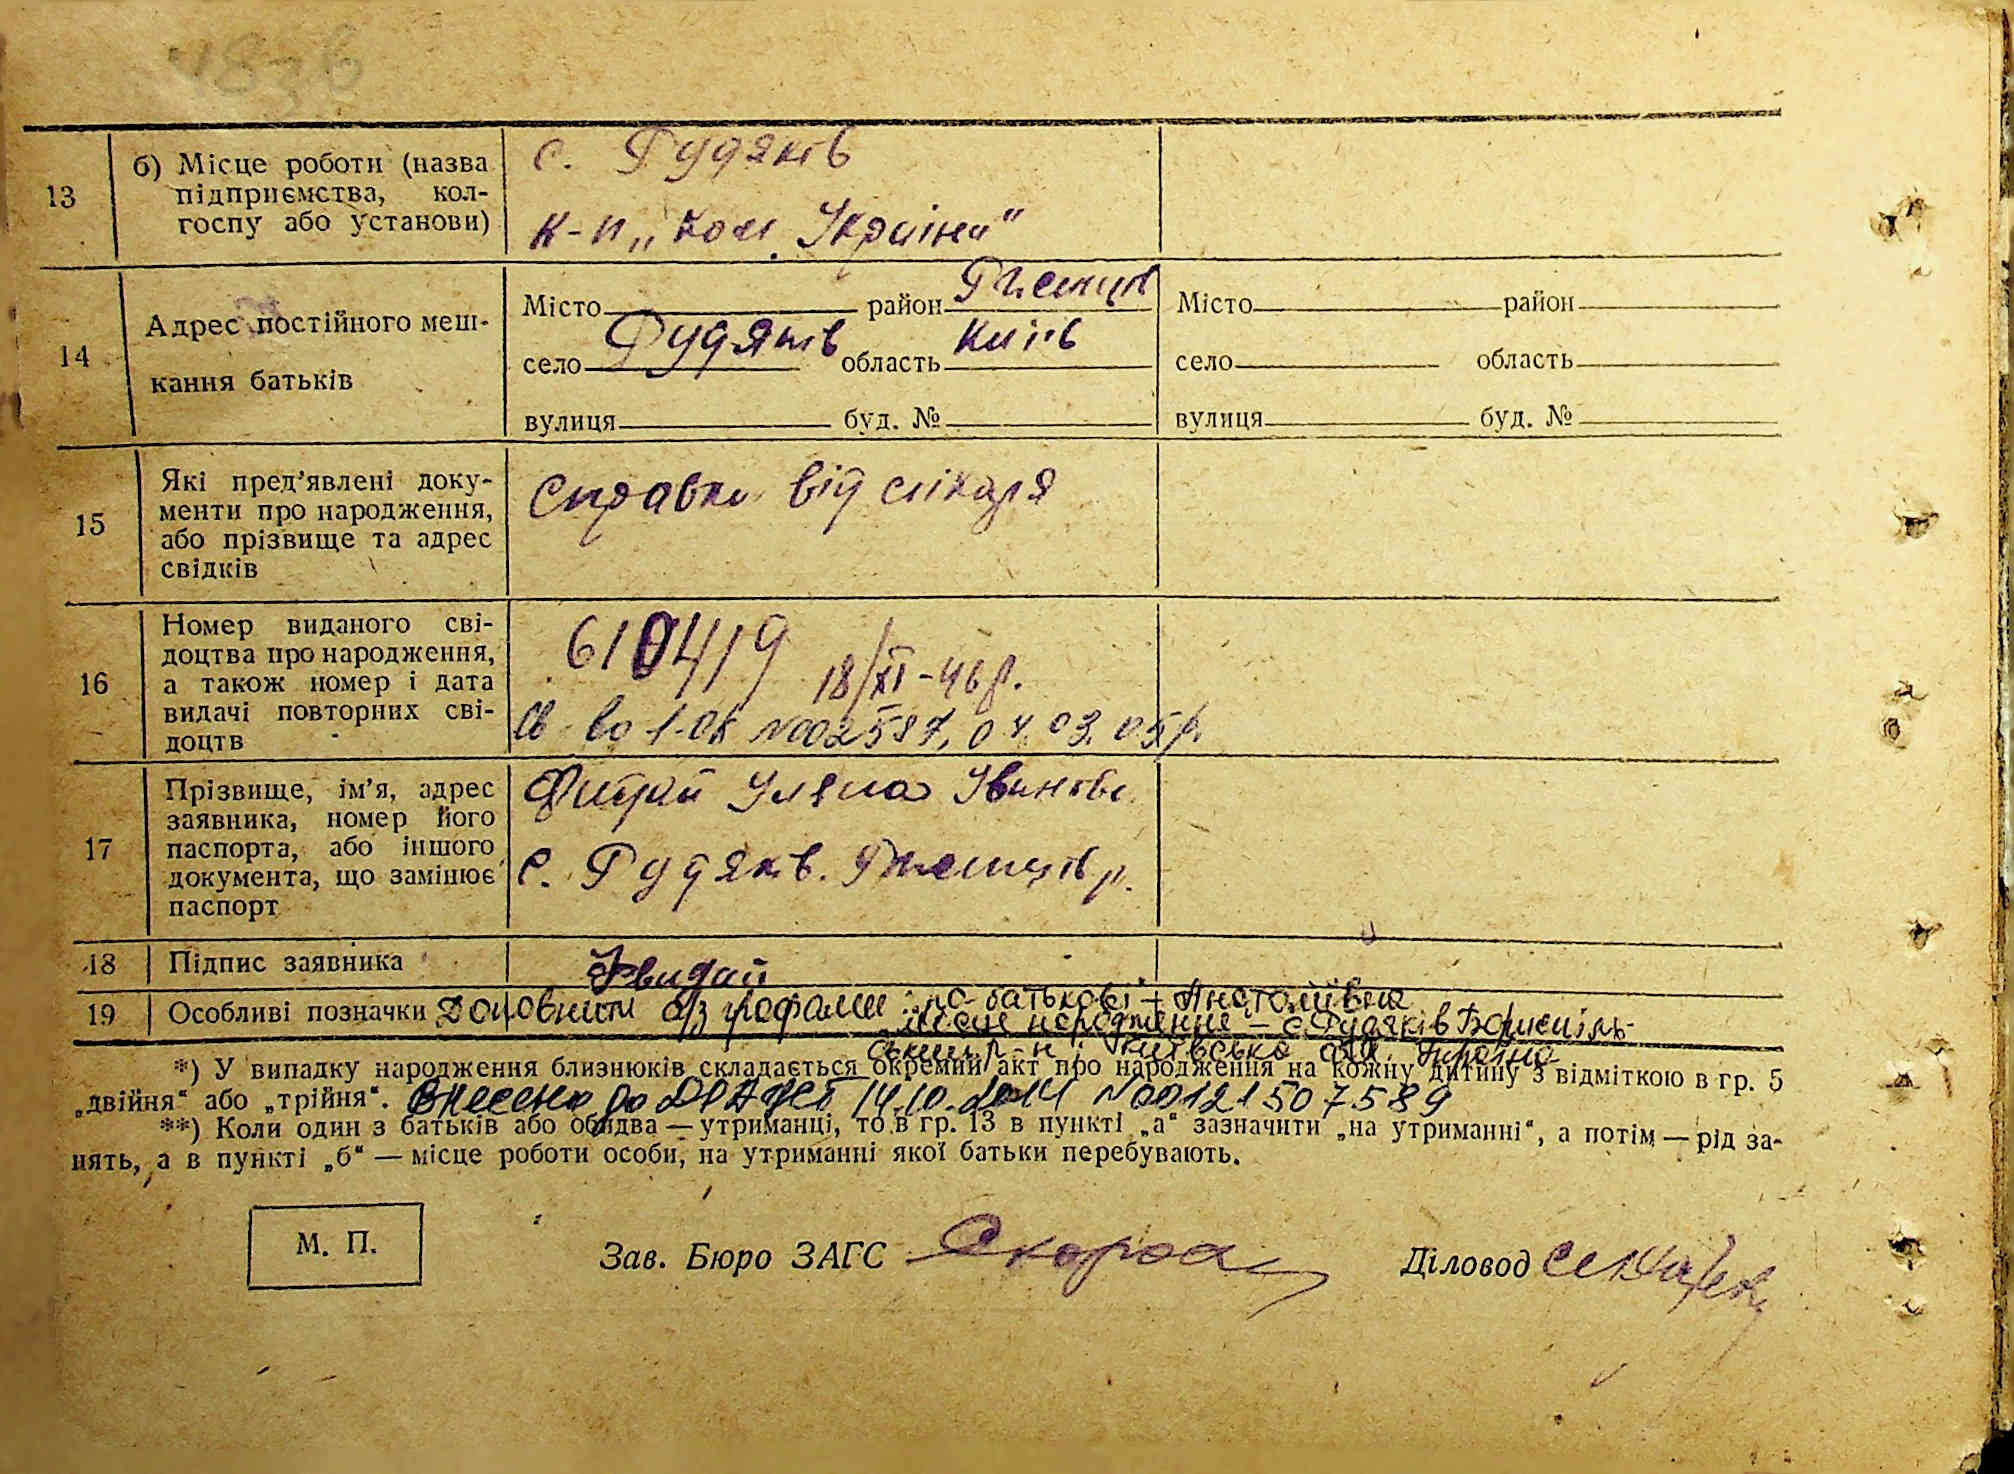 4836
13 б) Місце роботи (назва підприємства, кол-
госпу або установи)
с. Гудяків
к-п „Ком. України"
14 Адрес постійного меш-
кання батьків
Місто район Ржищів
село Рудяків область Київ
вулиця буд. №
Місто район
село область
вулиця буд. №
15 Які пред'явлені доку-
менти про народження,
або прізвище та адрес
свідків
Справка від лікаря
16 Номер виданого сві-
доцтва про народження,
а також номер і дата
видачі повторних сві-
доцтв
610419 18/XI-46 р.
Св-во 1-ОК №002587, 04.03.05 р.
17 Прізвище, ім'я, адрес
заявника, номер його
паспорта, або іншого
документа, що замінює
паспорт
Уляна Іванівн.
с. Рудяків. Ржищів р.
18 Підпис заявника
19 Особливі позначки Доповнити а/з графами: по-батькові – Анатоліївна
місце народження – с. Рудяків Бориспіль-
ський р-н, Київська обл. Україна
*) У випадку народження близнюків складається окремий акт про народження на кожну дитину з відміткою в гр. 5
„двійня" або „трійня". Внесено до ДРАЦСГ 14.10.2014 №00121507589
**) Коли один з батьків або обидва — утриманці, то в гр. 13 в пункті „а" зазначити „на утриманні", а потім — рід за-
нять, а в пункті „б" — місце роботи особи, на утриманні якої батьки перебувають.
М. П.
Зав. Бюро ЗАГС
Діловод